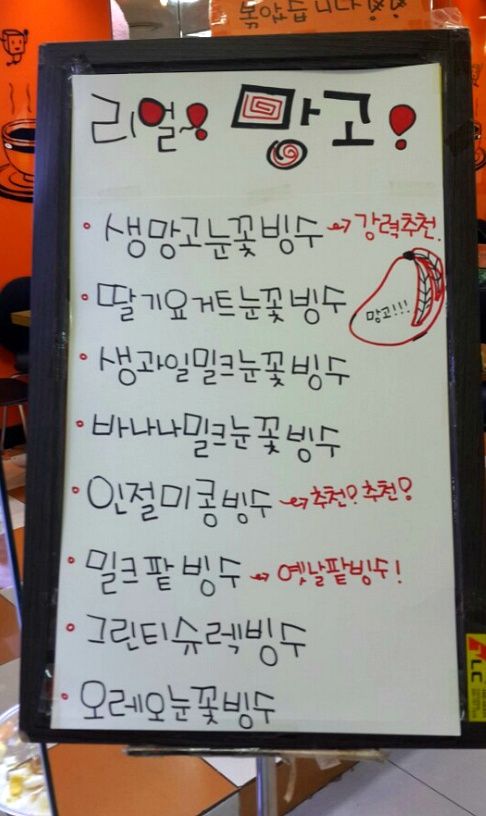 볶았습니다!!
리얼~! 망고!
생망고눈꽃빙수 → 강력추천.
망고!!!
딸기요거트눈꽃빙수
생과일밀크눈꽃빙수
바나나밀크눈꽃빙수
인절미콩빙수 → 추천? 추천?
밀크팥빙수 → 옛날팥빙수!
그린티슈렉빙수
오레오눈꽃빙수
LC